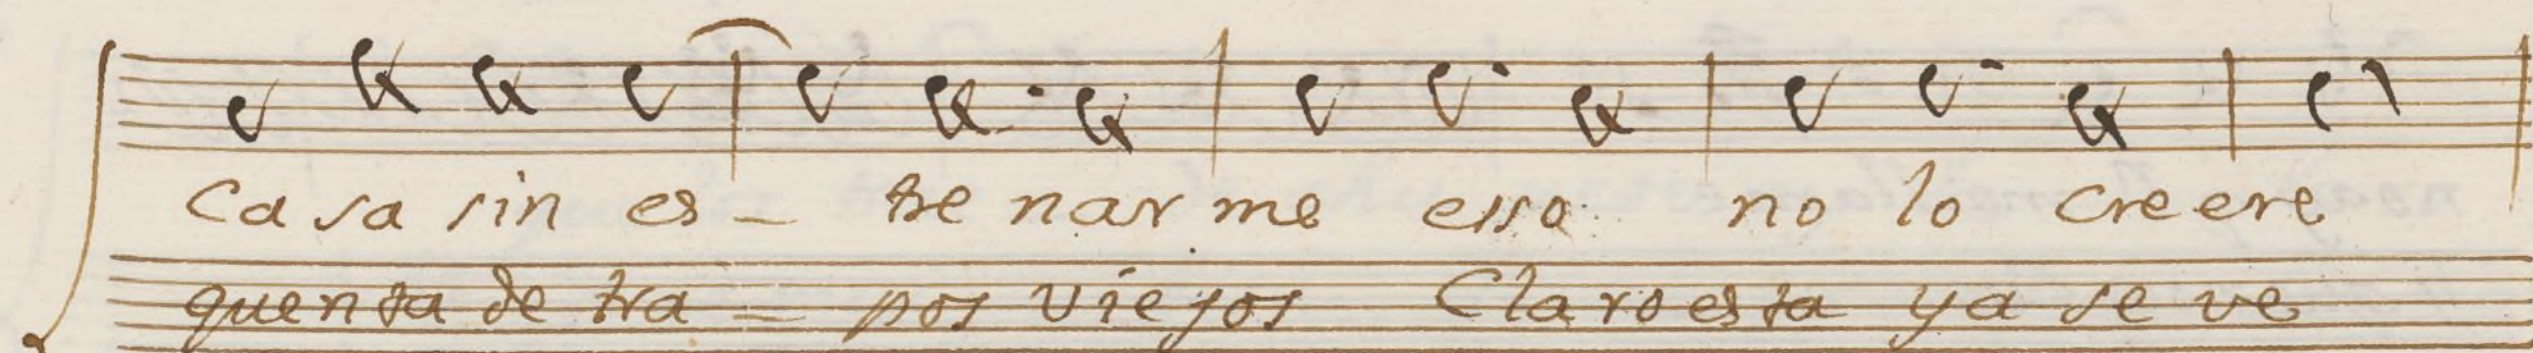 Casa sin es - tre narme esso no lo creere
quenta de tra - pos viejos Claro esta ya se ve